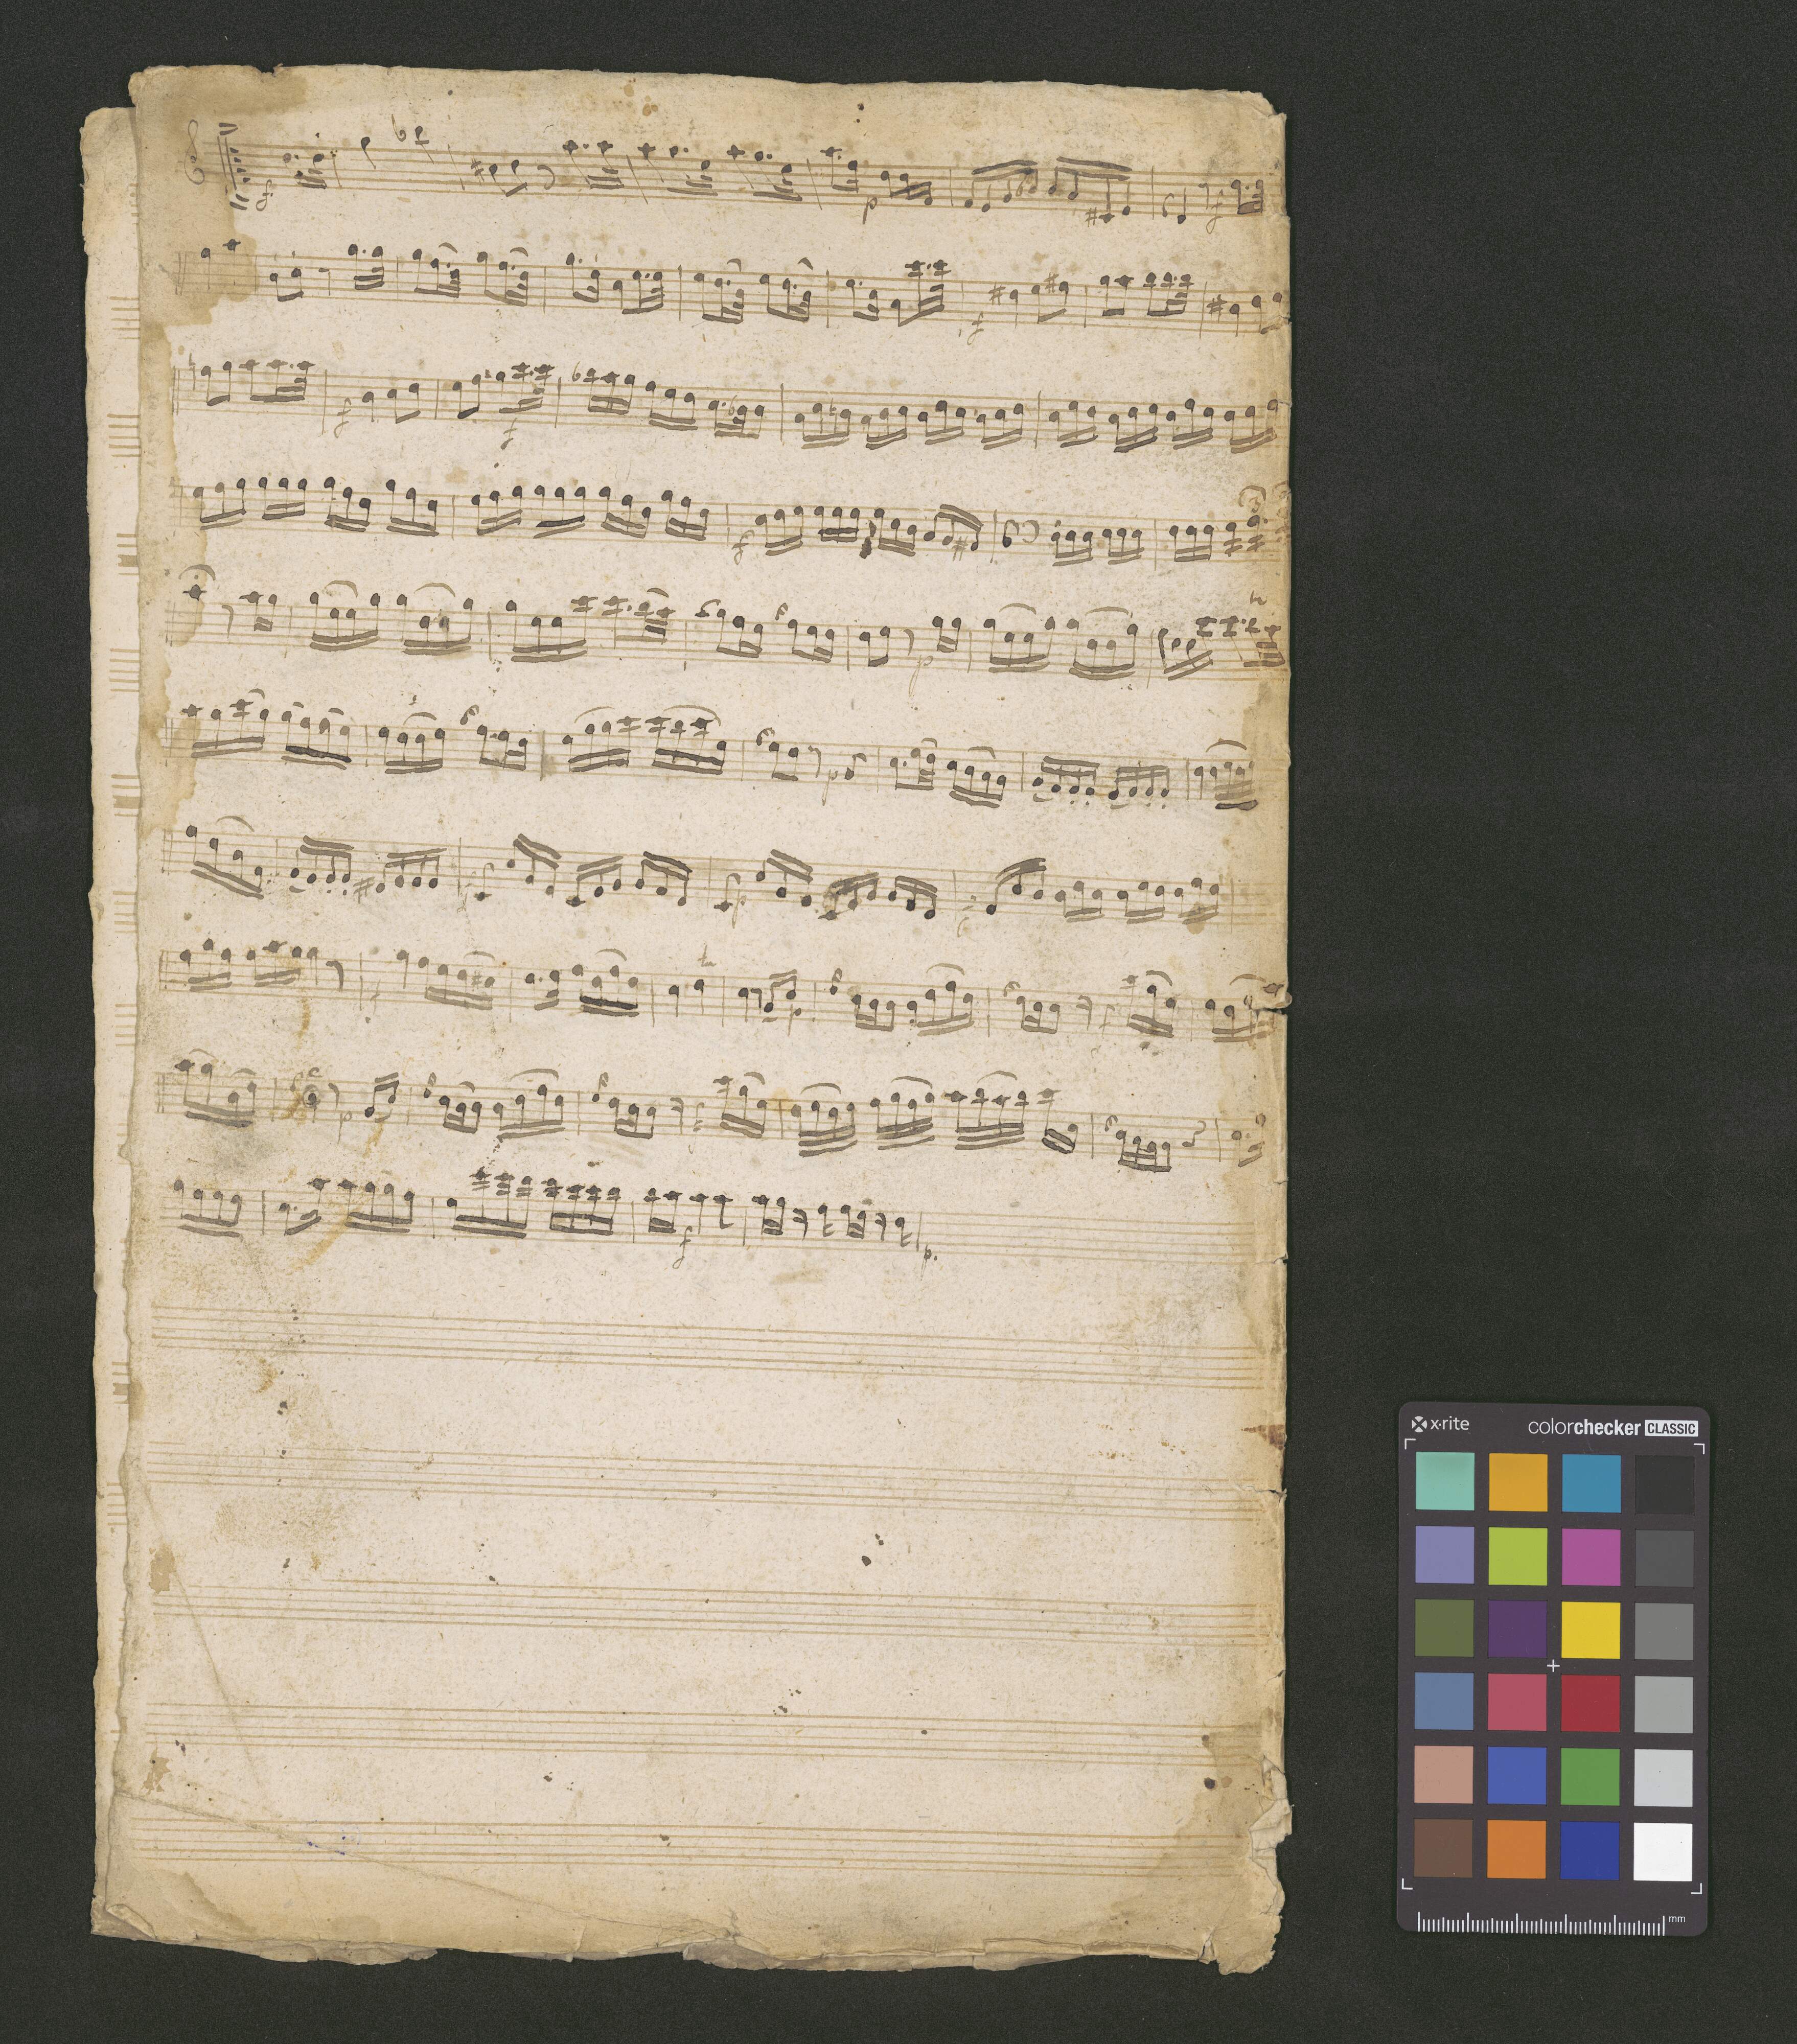 f
p
f
f
f
f
f
p
p
p
tr
p
p
f
p.
x·rite
colorchecker CLASSIC
mm